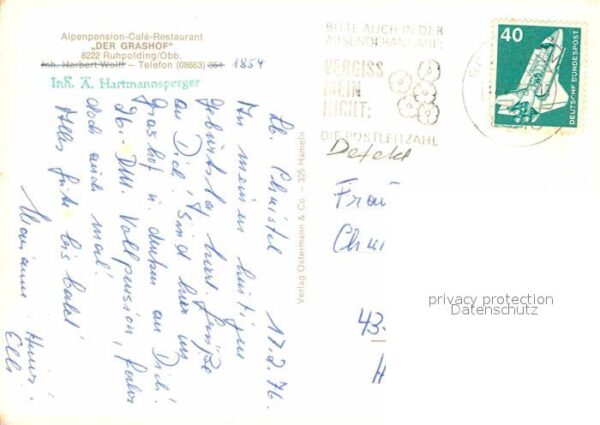 Alpenpension-Café-Restaurant
„DER GRASHOF"
8222 Ruhpolding/Obb.
Inh. Herbert Wolff – Telefon (08663) 354 1854
Inh. A. Hartmannsperger
Lb. Christel 17.2.76.
An meinem heutigen
Geburtstag herzl. Grüße
an Dich! Sind hier im
Grashof u. denken an Dich!
DM. Vollpension,
doch auch mal!
Alles Gute bis bald!
Marianne
Elli
Verlag Ostermann & Co. – 325 Hameln
BITTE AUCH IN DER
ABSENDERANGABE:
VERGISS
MEIN
NICHT:
DIE POSTLEITZAHL
40
DEUTSCHE BUNDESPOST
Defekt
Frau
43
privacy protection
Datenschutz